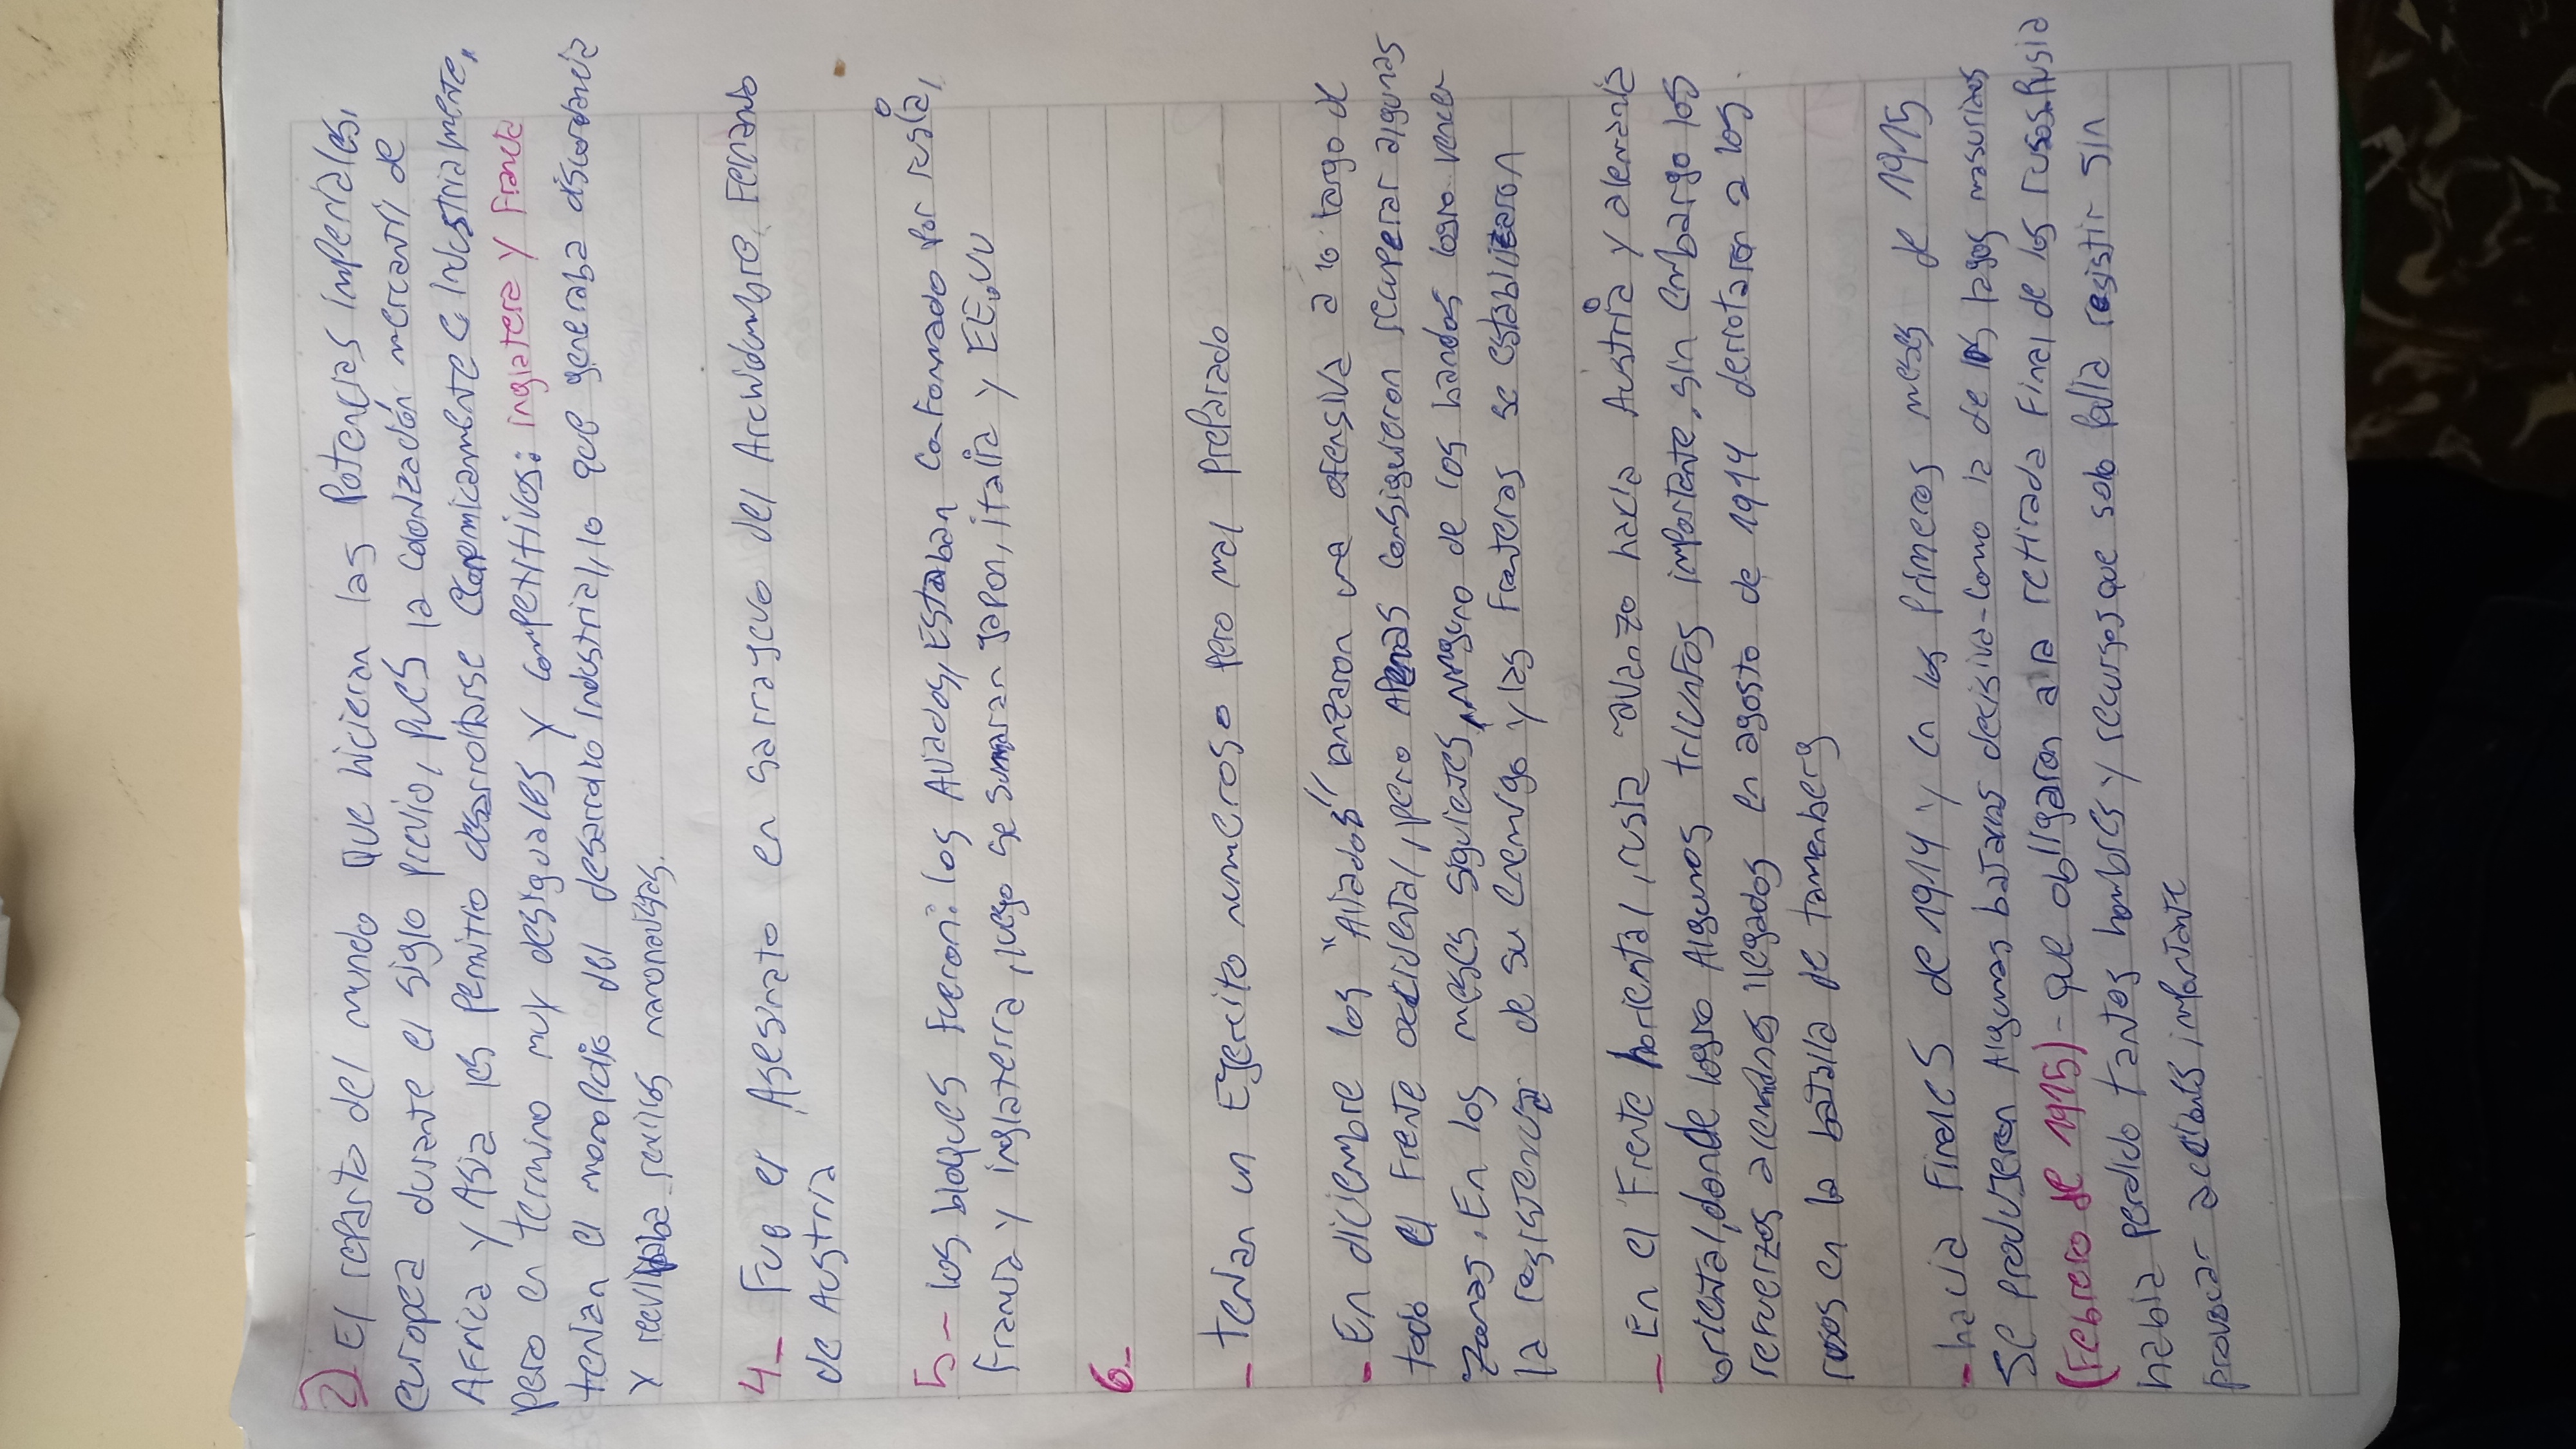 2) El reparto del mundo que hicieran las Potencias imperiales.
europea durante el siglo previo, pues la colonización mercantil de
Africa y Asia les permitio desarrollarse economicamente e industrialmente,
pero en termino muy desiguales y competitivos: inglatera y Francia
tenian el monopolio del desarrollo industrial, lo que generaba discordancia
y rivalidades
4- Fue el Asesinato en sarrayevo del Archidumbre, Fernando
de Austria
5- los bloques fueron: los Aliados, Estaban conformado por rusia,
francia y inglaterra, luego se sumaran japon, italia y EE.UU
6-
- tenian un Ejercito numeroso pero mal preparado
- En diciembre los "Aliados" lanzaron una ofensiva a lo largo de
todo el frente occidental, pero Apenas consiguieron recuperar algunas
Zonas. En los meses siguientes, ninguno de los bandos logro vencer
la resistencia de su enemigo y las fronteras se estabilizaron
- En el Frente horiental, rusia avanzo hacia Austria y alemania
oriental, donde logro Algunos triunfos importante, sin embargo los
refuerzos alemanes llegados en agosto de 1914 derrotaron a los
rusos en la batalla de tamenberg
- hacia Fines de 1914 y en los primeros meses de 1915
Se produjeron Algunas batallas decisiva-como la de los lagos masurianos
(Febrero de 1915)- que obligaron a la retirada final de los rusos. Rusia
habia perdido tantos hombres y recursos que solo podia resistir sin
provocar acciones importante